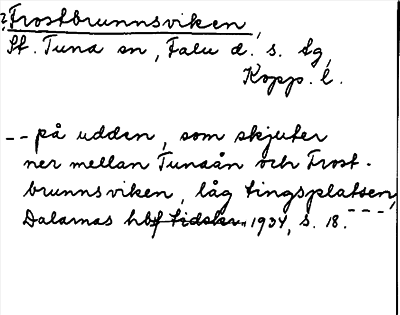 ?Frostbrunnsviken,
St. Tuna sn, Falu d. s. tg,
Kopp. l.
-- på udden, som skjuter
ner mellan Tunaån och Frost-
brunnsviken, låg tingsplatsen,
Dalarnas hbf 1934, s. 18. ---